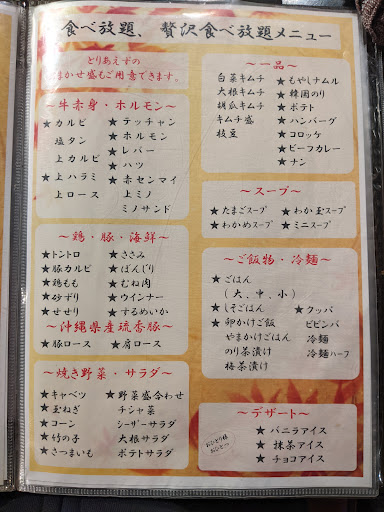 食べ放題、贅沢食べ放題メニュー
とりあえずの
おまかせ盛もご用意できます。
～牛赤身・ホルモン～
★カルビ
塩タン
上カルビ
★上ハラミ
上ロース
★テッチャン
★ホルモン
★レバー
★ハツ
★赤センマイ
上ミノ
ミノサンド
～鶏・豚・海鮮～
★トントロ
★豚カルビ
★鶏もも
★砂ずり
★せせり
★ささみ
★ぼんじり
★むね肉
★ウインナー
★するめいか
～沖縄県産琉香豚～
★豚ロース
★肩ロース
～焼き野菜・サラダ～
★キャベツ
★玉ねぎ
★コーン
★竹の子
★さつまいも
★野菜盛合わせ
チシャ菜
シーザーサラダ
大根サラダ
ポテトサラダ
～一品～
白菜キムチ
大根キムチ
胡瓜キムチ
キムチ盛
枝豆
★もやしナムル
★韓国のり
★ポテト
★ハンバーグ
★コロッケ
★ビーフカレー
★ナン
～スープ～
★たまごスープ
★わかめスープ
★わか玉スープ
★ミニスープ
～ご飯物・冷麺～
★ごはん
（大、中、小）
★しそごはん
★卵かけご飯
やまかけごはん
のり茶漬け
梅茶漬け
★クッパ
ビビンバ
冷麺
冷麺ハーフ
～デザート～
おひとり様
おひとつ
★バニラアイス
★抹茶アイス
★チョコアイス